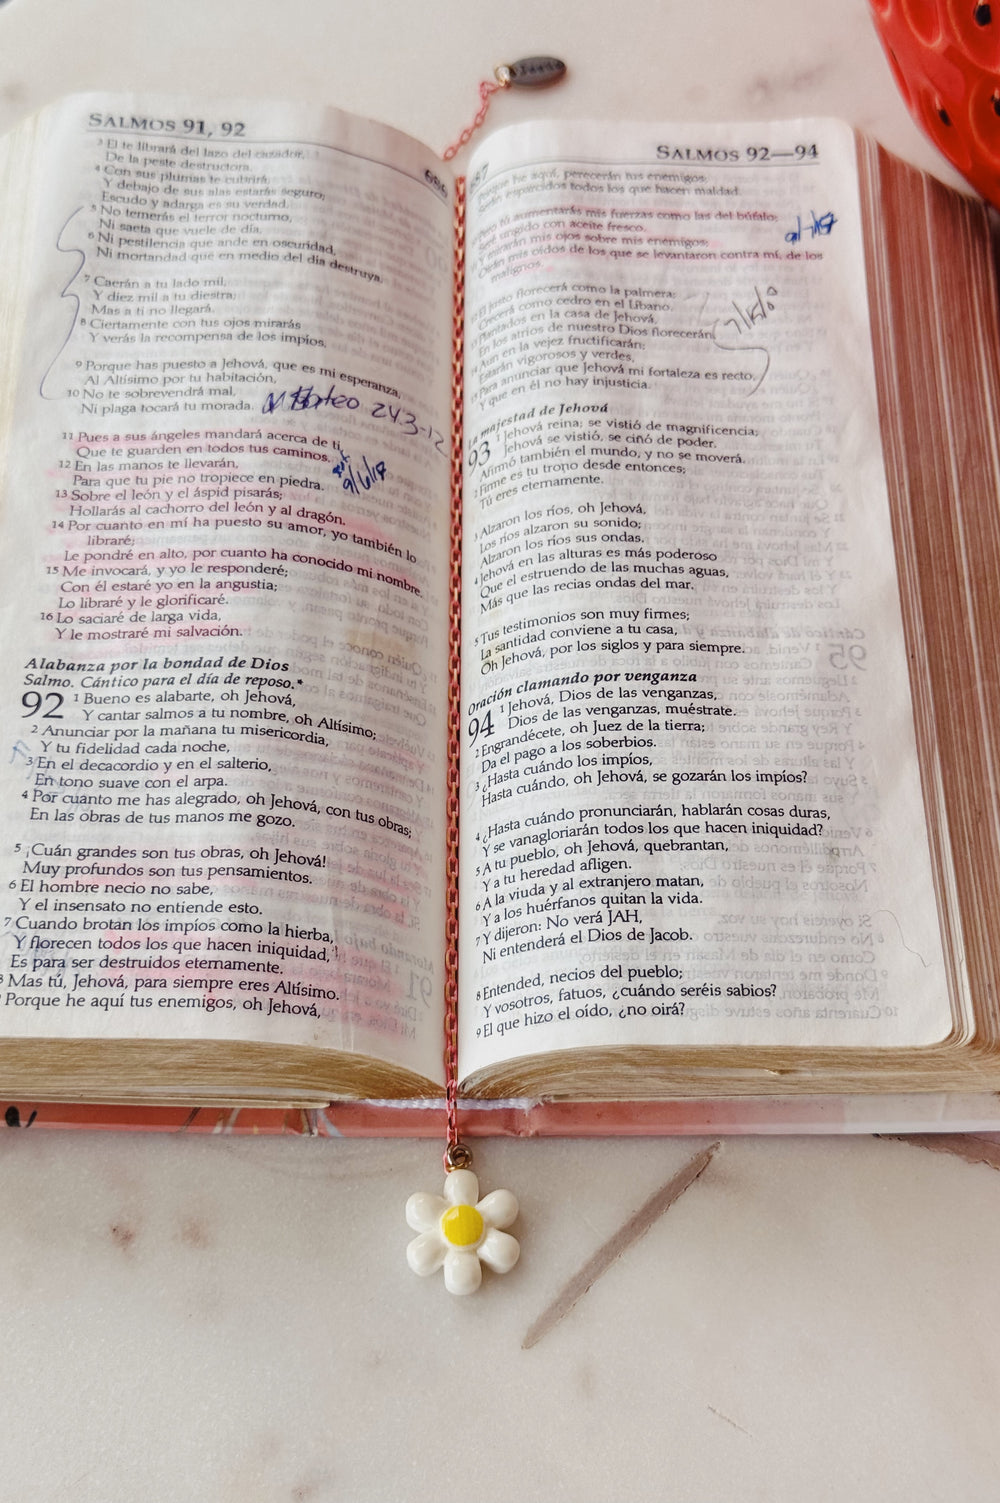 SALMOS 91, 92
686
3 El te librará del lazo del cazador,
De la peste destructora.
4 Con sus plumas te cubrirá,
Y debajo de sus alas estarás seguro;
Escudo y adarga es su verdad.
5 No temerás el terror nocturno,
Ni saeta que vuele de día,
6 Ni pestilencia que ande en oscuridad,
Ni mortandad que en medio del día destruya.
7 Caerán a tu lado mil,
Y diez mil a tu diestra;
Mas a ti no llegará.
8 Ciertamente con tus ojos mirarás
Y verás la recompensa de los impíos.
9 Porque has puesto a Jehová, que es mi esperanza,
Al Altísimo por tu habitación,
10 No te sobrevendrá mal,
Ni plaga tocará tu morada.
Mateo 24:3-12
11 Pues a sus ángeles mandará acerca de ti,
Que te guarden en todos tus caminos.
12 En las manos te llevarán,
Para que tu pie no tropiece en piedra.
13 Sobre el león y el áspid pisarás;
Hollarás al cachorro del león y al dragón.
14 Por cuanto en mí ha puesto su amor, yo también lo
libraré;
Le pondré en alto, por cuanto ha conocido mi nombre.
15 Me invocará, y yo le responderé;
Con él estaré yo en la angustia;
Lo libraré y le glorificaré.
16 Lo saciaré de larga vida,
Y le mostraré mi salvación.
Alabanza por la bondad de Dios
Salmo. Cántico para el día de reposo.*
92 1 Bueno es alabarte, oh Jehová,
Y cantar salmos a tu nombre, oh Altísimo;
2 Anunciar por la mañana tu misericordia,
Y tu fidelidad cada noche,
3 En el decacordio y en el salterio,
En tono suave con el arpa.
4 Por cuanto me has alegrado, oh Jehová, con tus obras;
En las obras de tus manos me gozo.
5 ¡Cuán grandes son tus obras, oh Jehová!
Muy profundos son tus pensamientos.
6 El hombre necio no sabe,
Y el insensato no entiende esto.
7 Cuando brotan los impíos como la hierba,
Y florecen todos los que hacen iniquidad,
Es para ser destruidos eternamente.
8 Mas tú, Jehová, para siempre eres Altísimo.
Porque he aquí tus enemigos, oh Jehová,
SALMOS 92—94
Porque he aquí, perecerán tus enemigos;
Serán esparcidos todos los que hacen maldad.
Pero tú aumentarás mis fuerzas como las del búfalo;
Seré ungido con aceite fresco.
Y mirarán mis ojos sobre mis enemigos;
Oirán mis oídos de los que se levantaron contra mí, de los
malignos.
El justo florecerá como la palmera;
Crecerá como cedro en el Líbano.
Plantados en la casa de Jehová,
En los atrios de nuestro Dios florecerán.
14 Aun en la vejez fructificarán;
Estarán vigorosos y verdes,
15 Para anunciar que Jehová mi fortaleza es recto,
Y que en él no hay injusticia.
La majestad de Jehová
93 1 Jehová reina; se vistió de magnificencia;
Jehová se vistió, se ciñó de poder.
Afirmó también el mundo, y no se moverá.
2 Firme es tu trono desde entonces;
Tú eres eternamente.
3 Alzaron los ríos, oh Jehová,
Los ríos alzaron su sonido;
Alzaron los ríos sus ondas.
4 Jehová en las alturas es más poderoso
Que el estruendo de las muchas aguas,
Más que las recias ondas del mar.
5 Tus testimonios son muy firmes;
La santidad conviene a tu casa,
Oh Jehová, por los siglos y para siempre.
Oración clamando por venganza
94 1 Jehová, Dios de las venganzas,
Dios de las venganzas, muéstrate.
2 Engrandécete, oh Juez de la tierra;
Da el pago a los soberbios.
3 ¿Hasta cuándo los impíos,
Hasta cuándo, oh Jehová, se gozarán los impíos?
4 ¿Hasta cuándo pronunciarán, hablarán cosas duras,
Y se vanagloriarán todos los que hacen iniquidad?
5 A tu pueblo, oh Jehová, quebrantan,
Y a tu heredad afligen.
6 A la viuda y al extranjero matan,
Y a los huérfanos quitan la vida.
7 Y dijeron: No verá JAH,
Ni entenderá el Dios de Jacob.
8 Entended, necios del pueblo;
Y vosotros, fatuos, ¿cuándo seréis sabios?
9 El que hizo el oído, ¿no oirá?